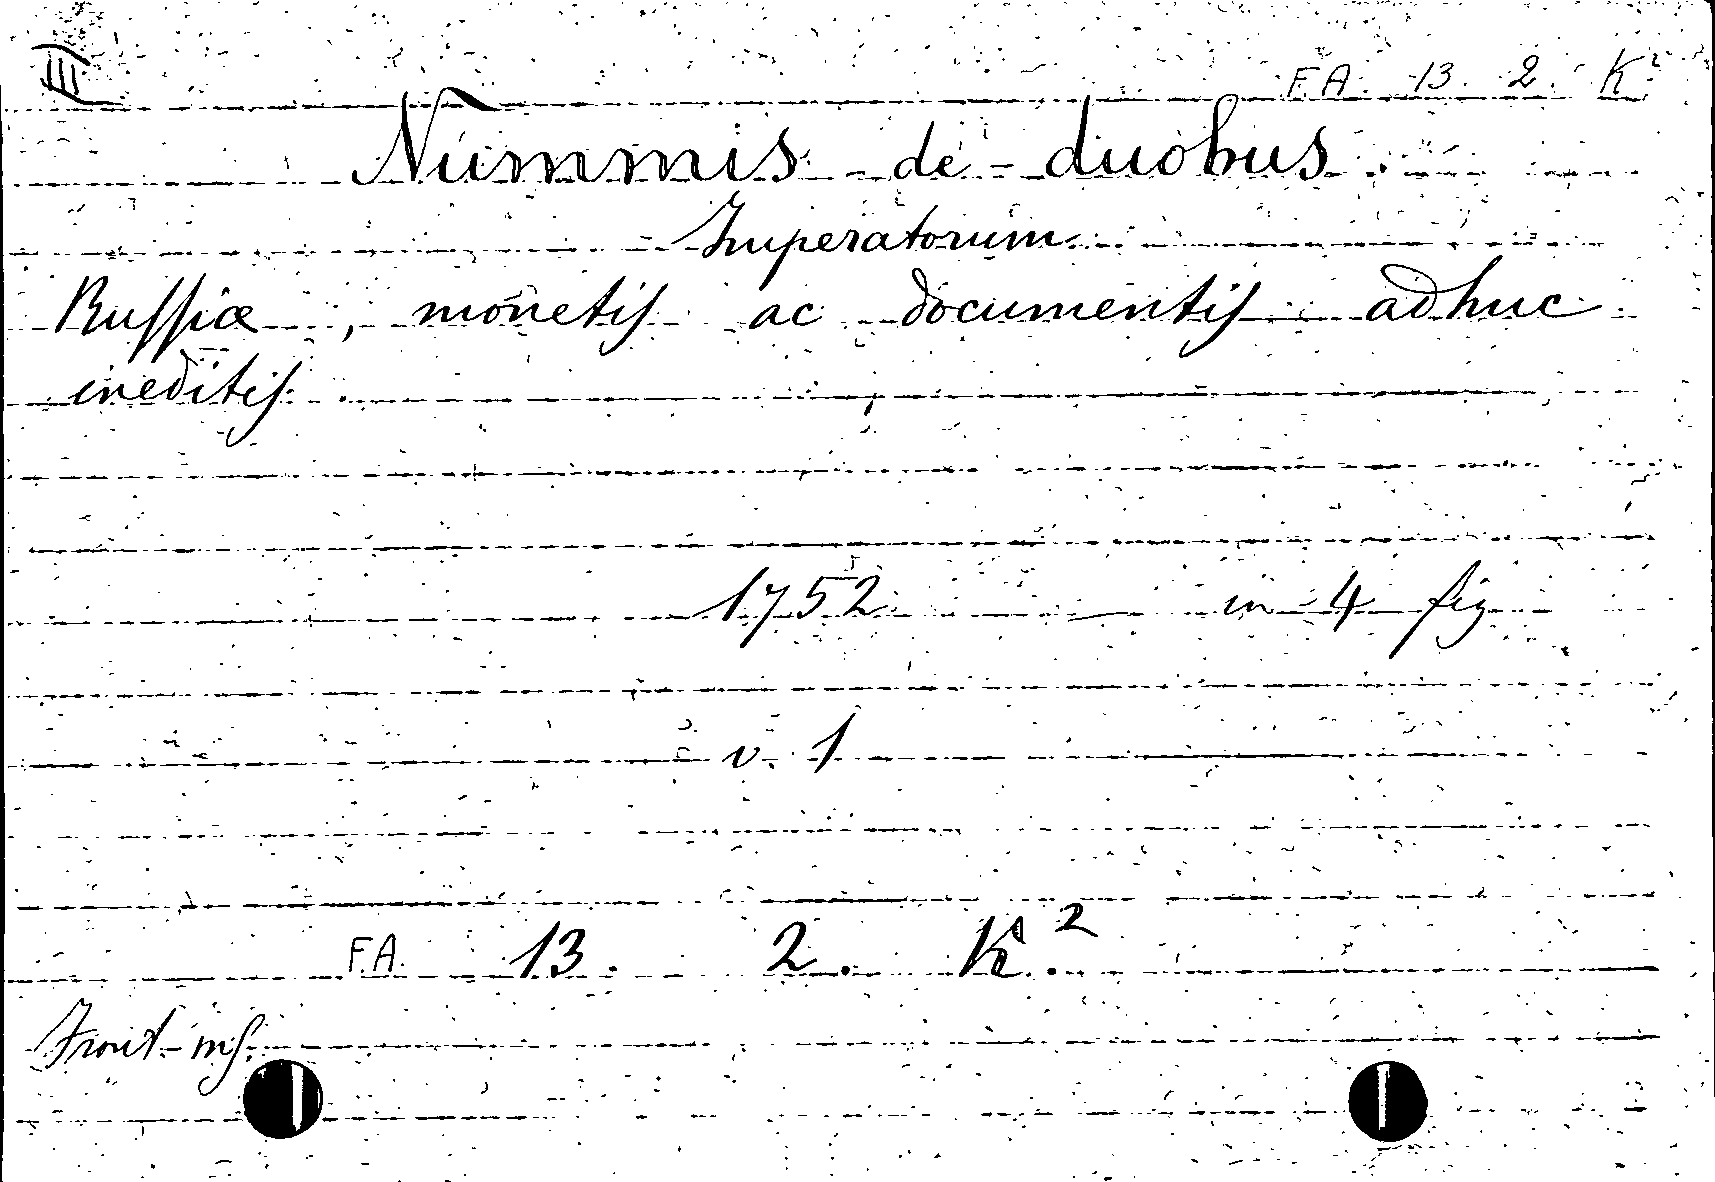 III
FA. 13. 2. K²
Nummis de duobus.
Imperatorum
Russiæ, monetis ac documentis adhuc
ineditis.
1752 in 4 fig
v. 1
FA. 13. 2. K.²
Front ms.